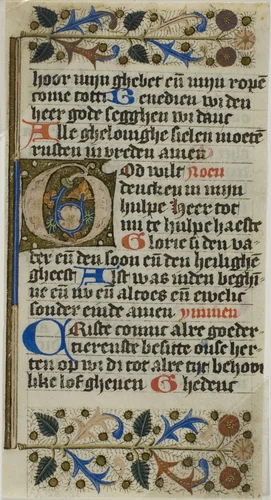 hoor mijn ghebet eñ mijn ropē
come totti Benedien wi den
heer gode segghen wi danc
Alle ghelouighe sielen moetē
rusten in vreden amen
God wilt noen
dencken in mijn
hulpe Heer tot
mi te hulpe haeste
Glorie si den va
ter eñ den soon eñ den heilighē
gheest Alst was inden beghī
ne eñ nv eñ altoes eñ ewelic
sonder einde amen ymmen
Criste comt alre goeder
tierenste besitte onse her
ten op wi di tot alre tijt behou
like lof gheuen Ghedenc